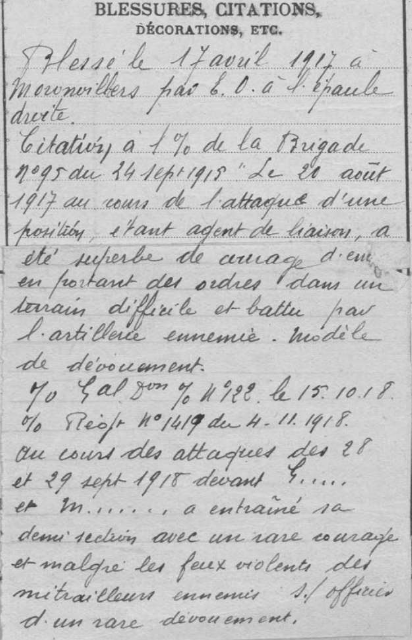 BLESSURES, CITATIONS,
DÉCORATIONS, ETC.
Blessé le 17 avril 1917 à
Moronvillers par E. O. à l'épaule
droite.
Citation à l'% de la Brigade
n°95 du 24 sept 1918 " Le 20 août
1917 au cours de l'attaque d'une
position, étant agent de liaison, a
été superbe de courage
en portant des ordres dans un
terrain difficile et battu par
l'artillerie ennemie. Modèle
de dévouement.
% Gal. Don % N°122. le 15.10.18.
% Régt N°1419 du 4.11.1918.
au cours des attaques des 28
et 29 sept 1918 devant G.....
et M....... a entraîné sa
demi section avec un rare courage
et malgré les feux violents des
mitrailleurs ennemis S/ officier
d'un rare dévouement.